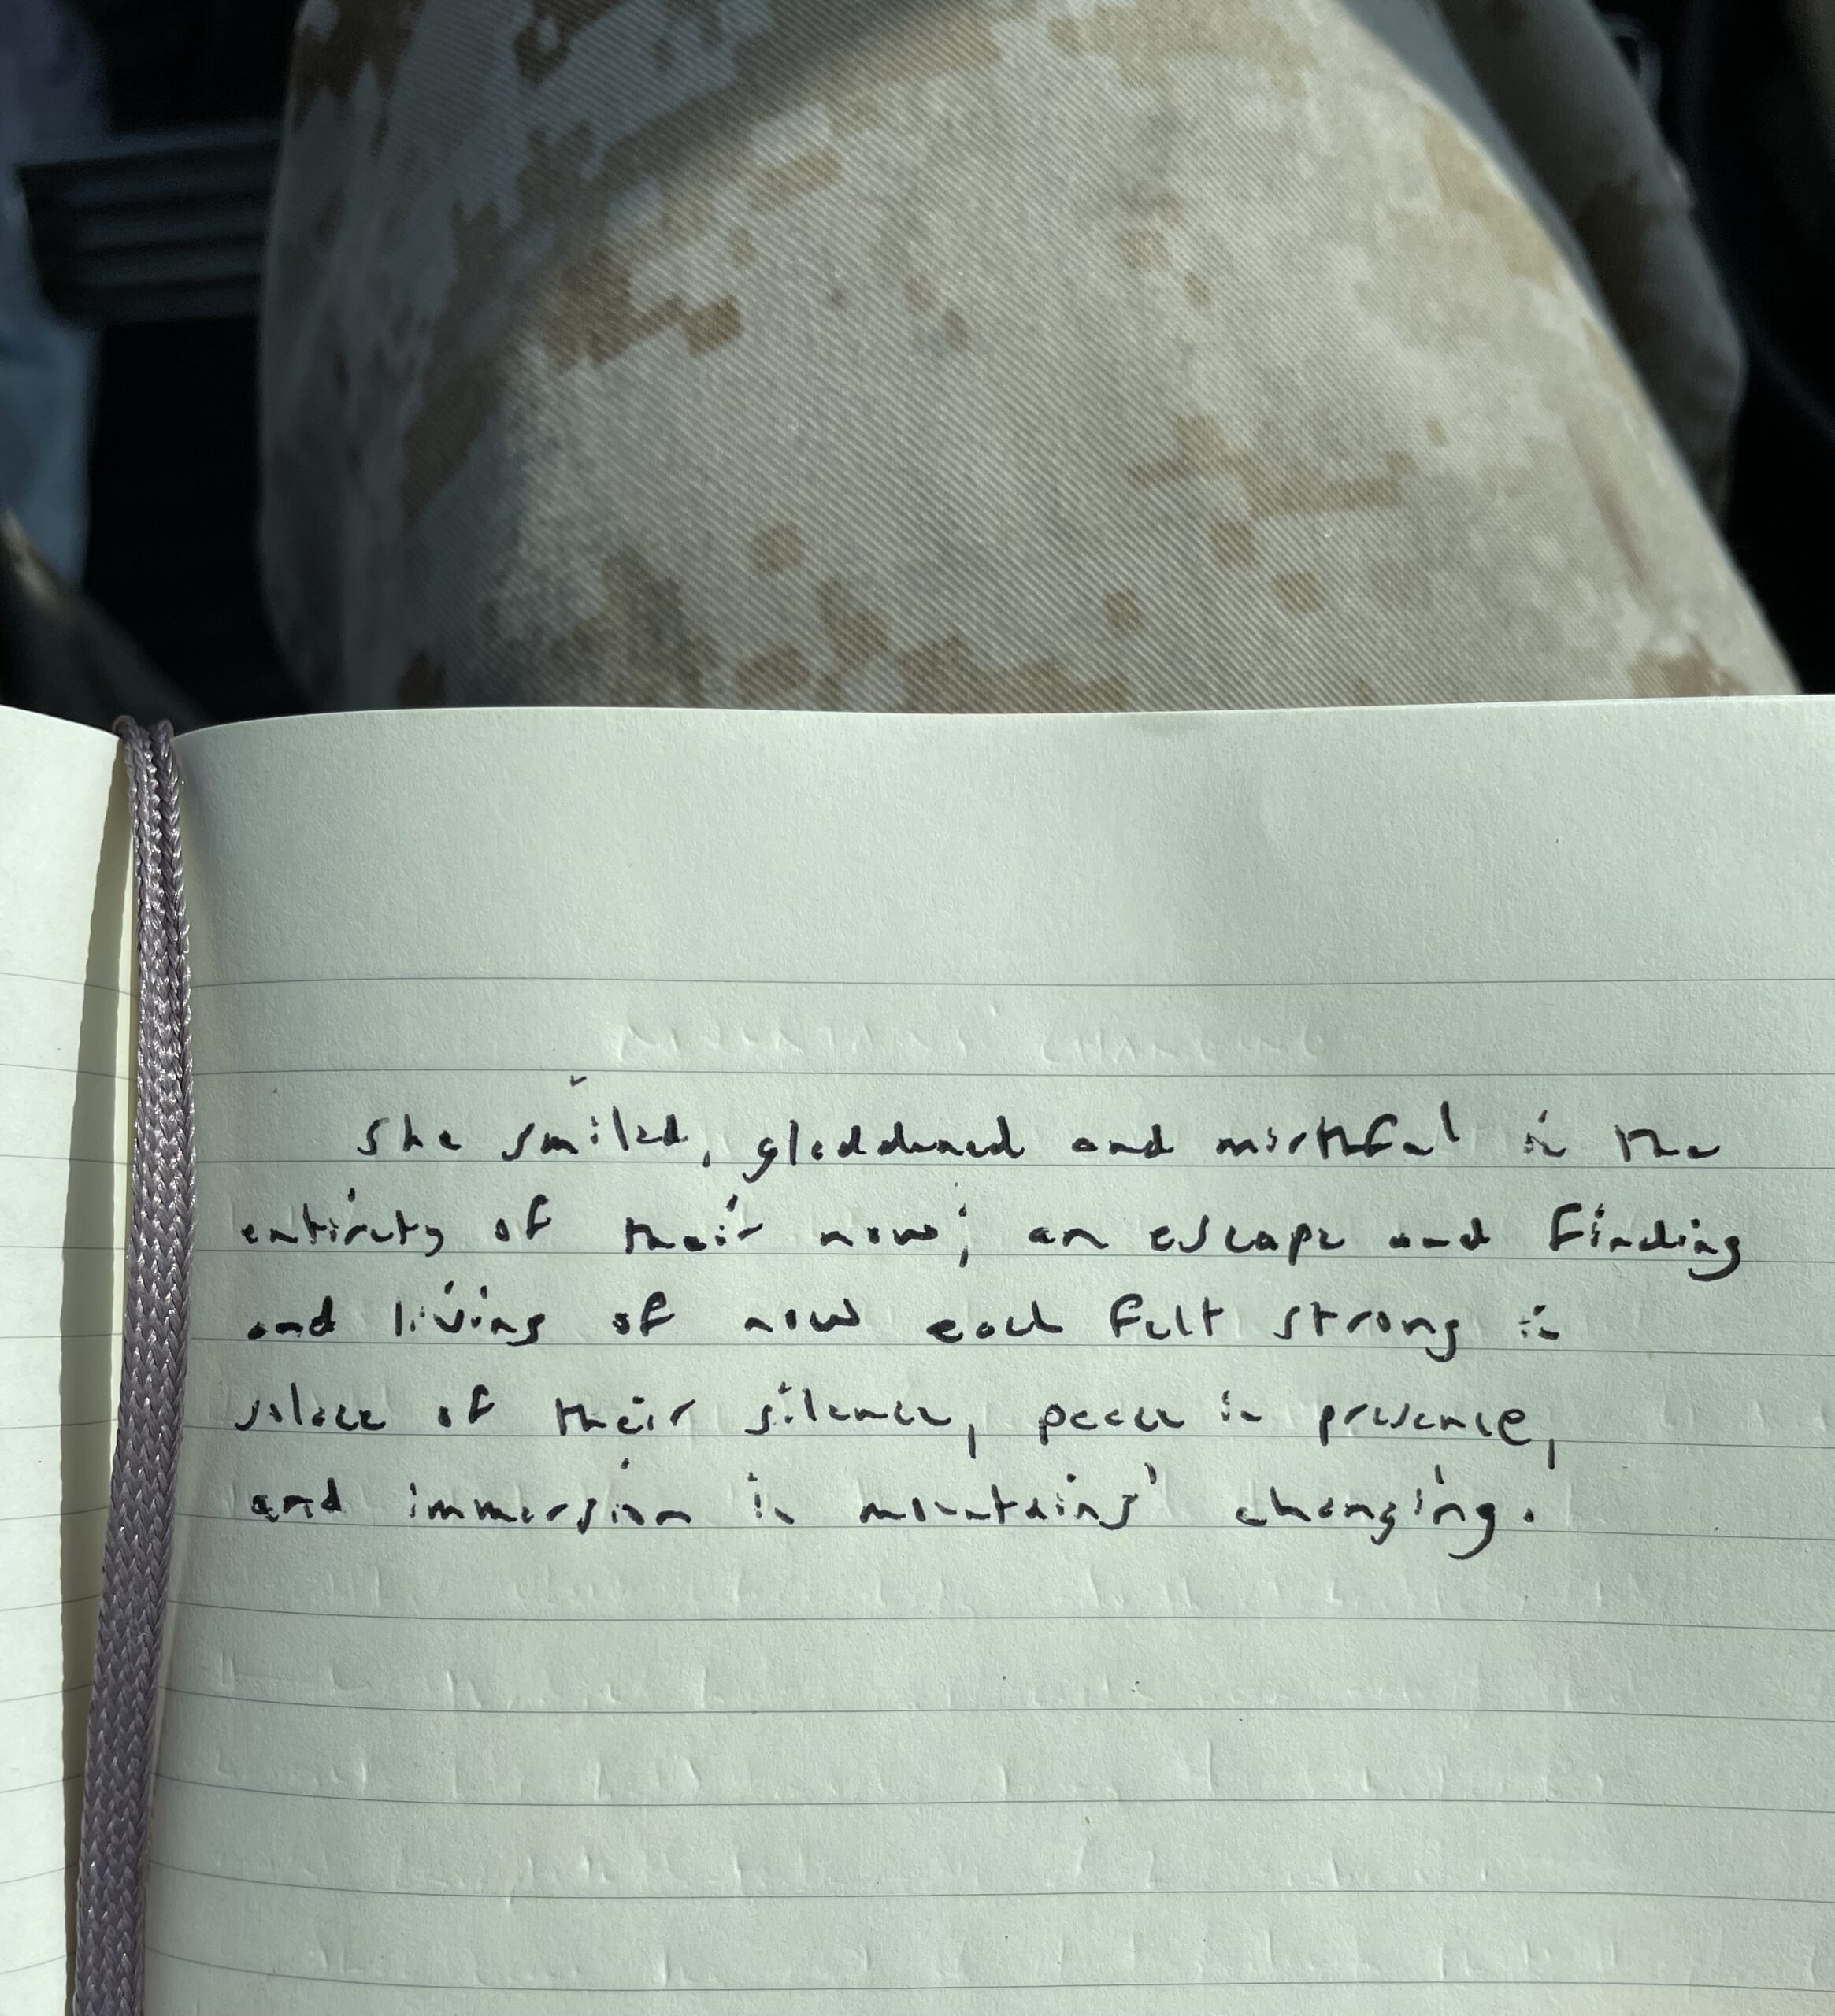 MOUNTAINS CHANGING
She smiled, gladdened and mirthful in the
entirety of their now; an escape and finding
and living of now each felt strong in
solace of their silence, peace in presence,
and immersion in mountains' changing.